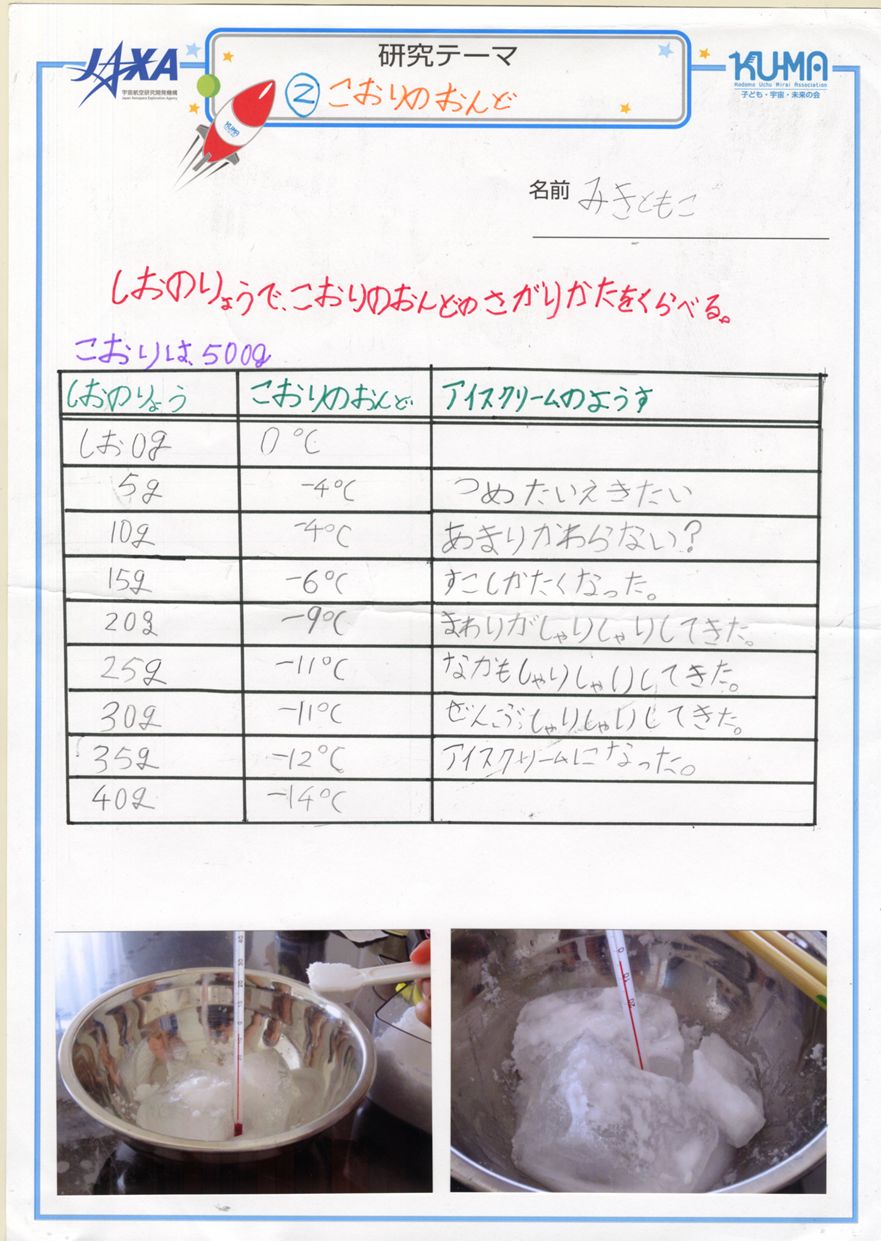 JAXA
宇宙航空研究開発機構
Japan Aerospace Exploration Agency
研究テーマ
②こおりのおんど
KUMA
Kodomo Uchu Mirai Association
子ども・宇宙・未来の会
KUMA
名前 みきともこ
しおのりょうで、こおりのおんどのさがりかたをくらべる。
こおりは、500g
しおのりょう こおりのおんど アイスクリームのようす
しお0g 0℃
5g -4℃ つめたいえきたい
10g -4℃ あまりかわらない?
15g -6℃ すこしかたくなった。
20g -9℃ まわりがしゃりしゃりしてきた。
25g -11℃ なかもしゃりしゃりしてきた。
30g -11℃ ぜんぶしゃりしゃりしてきた。
35g -12℃ アイスクリームになった。
40g -14℃